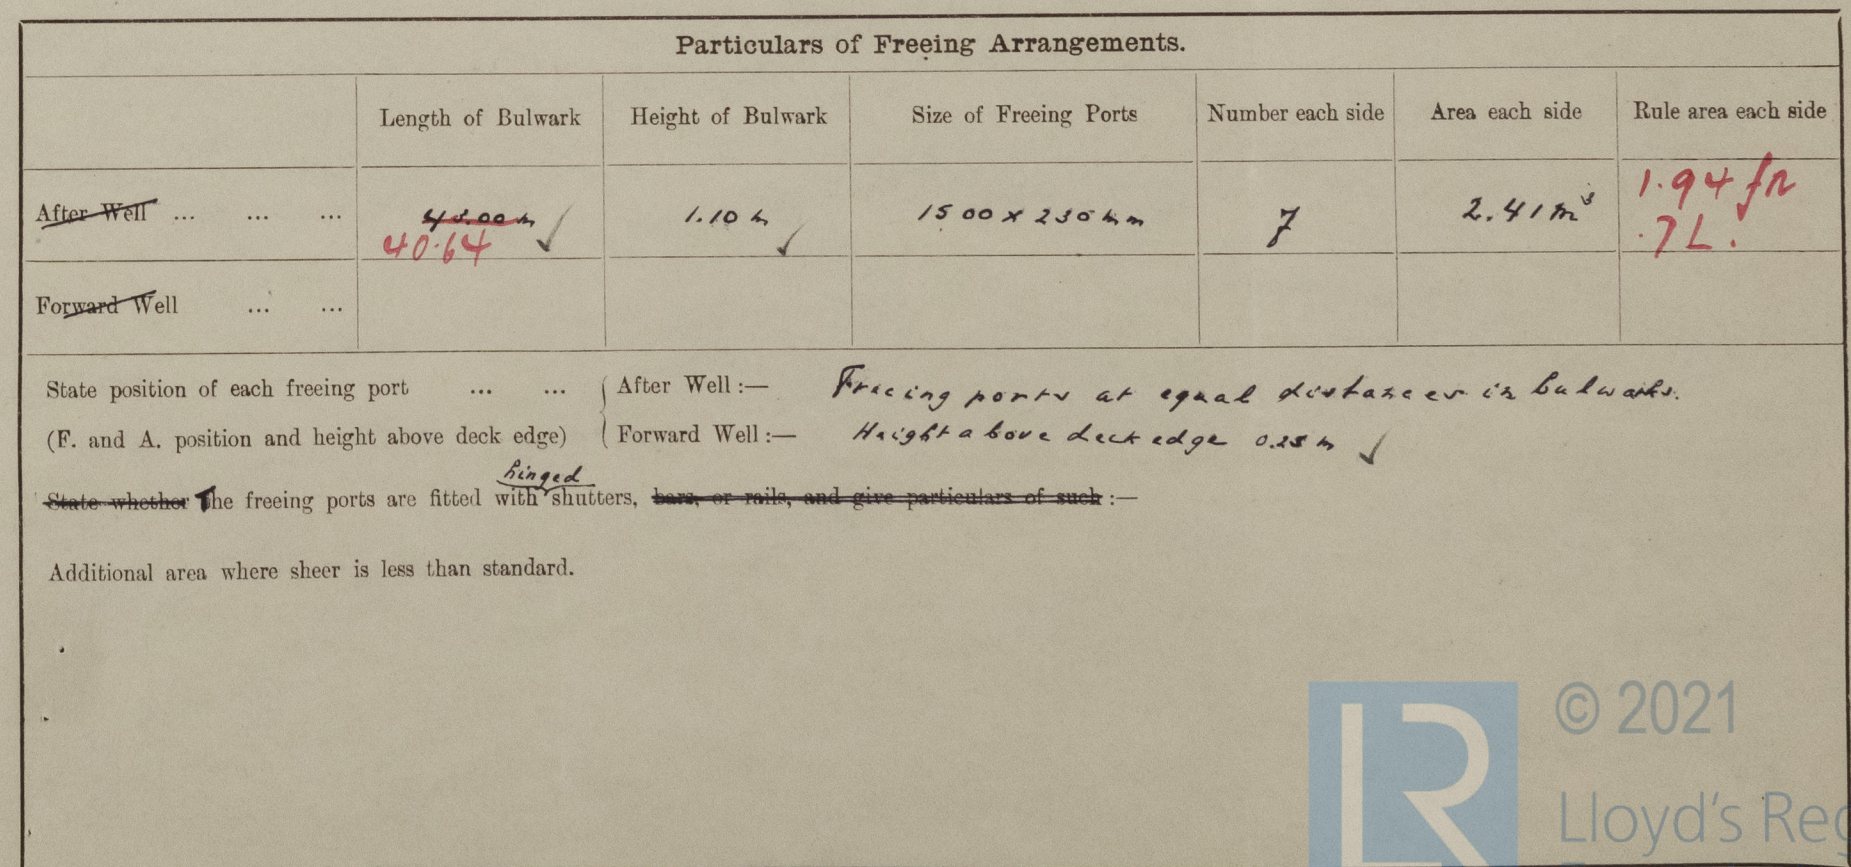 Particulars of Freeing Arrangements.
Length of Bulwark Height of Bulwark Size of Freeing Ports Number each side Area each side Rule area each side
After Well ... ... ... 43.00 m 1.10 m 1500 x 230 mm 7 2.41 m³ 1.94 for
40.64 .7 L.
Forward Well ... ...
State position of each freeing port ... ... After Well :— Freeing ports at equal distances in bulwarks.
(F. and A. position and height above deck edge) Forward Well :— Height above deck edge 0.25 m
hinged
State whether The freeing ports are fitted with shutters, bars, or rails, and give particulars of such :—
Additional area where sheer is less than standard.
© 2021
Lloyd's Reg